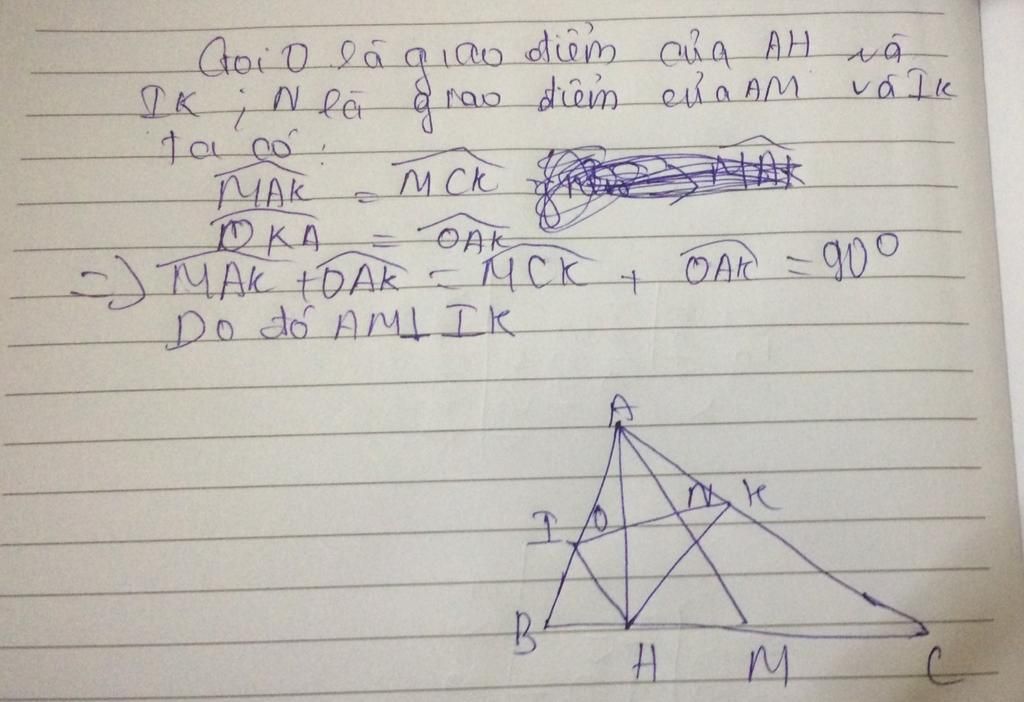 Gọi O là giao điểm của AH và
IK ; N là giao điểm của AM và IK
Ta có :
MAK = MCK
OKA = OAK
=> MAK + OAK = MCK + OAK = 90°
Do đó AM⊥IK
A
I O N K
B H M C